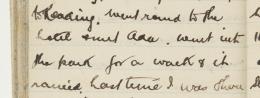 to Reading. went round to the
hotel & met Ada. went into
the park for a walk & it
rained. Last time I was there